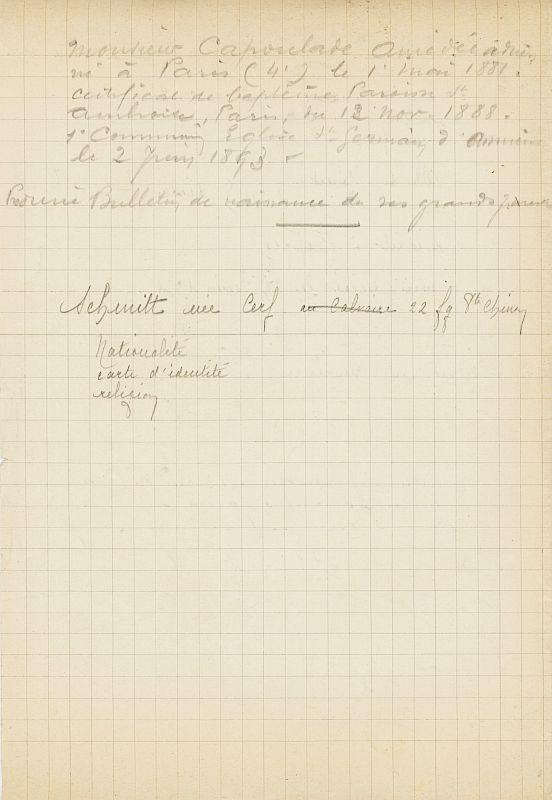 Monsieur Capoulade Amédée Adrien
né à Paris (4e) le 1er Mai 1881.
certificat de baptême, Paroisse St
Ambroise, Paris, du 12 Nov. 1888.
1e Communion, Eglise St Germain, d'Amiens
le 2 Juin 1893
Bulletin de naissance de ses grands parents
Schmitt née Cerf au Calvaire 22 fg
Nationalité
carte d'identité
religion